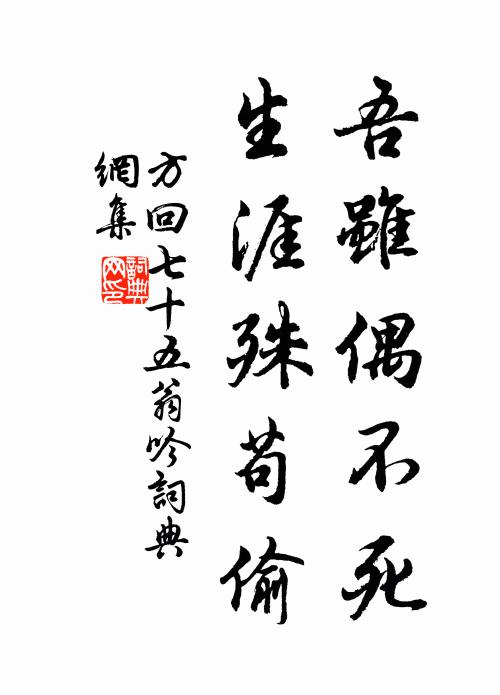 吾雖偶不死
生涯殊苟偷
方回七十五翁吟詞典
網集
詞典網印